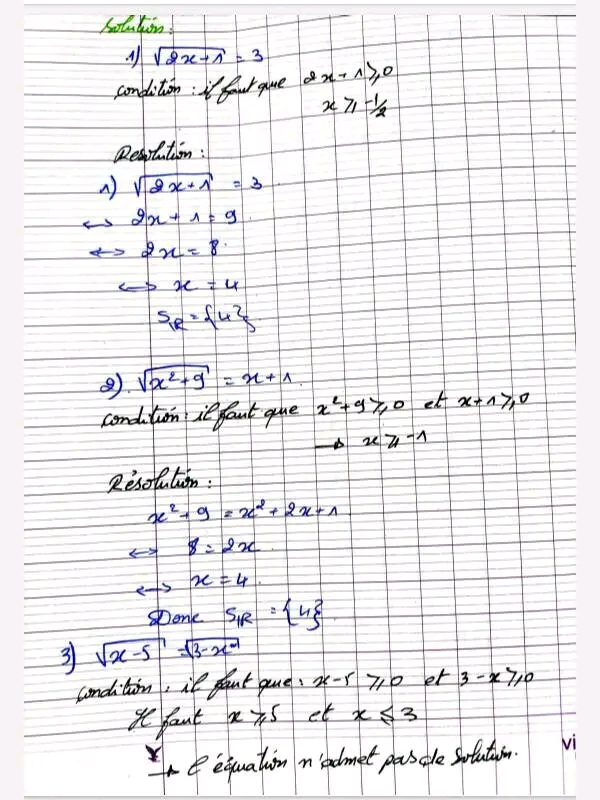 Solution:
1) √2x+1 = 3
condition : il faut que 2x+1 ⩾ 0
x ⩾ -1/2
Resolution :
1) √2x+1 = 3
<-> 2x+1 = 9
<-> 2x = 8
<-> x = 4
S_IR = {4}
2). √x²+9 = x+1
condition : il faut que x²+9 ⩾ 0 et x+1 ⩾ 0
→ x ⩾ -1
Résolution :
x²+9 = x²+2x+1
<-> 8 = 2x
<-> x = 4
Donc S_IR = {4}
3) √x-5 = √3-x
condition : il faut que : x-5 ⩾ 0 et 3-x ⩾ 0
Il faut x ⩾ 5 et x ⩽ 3
→ l'équation n'admet pas de solution.
vi